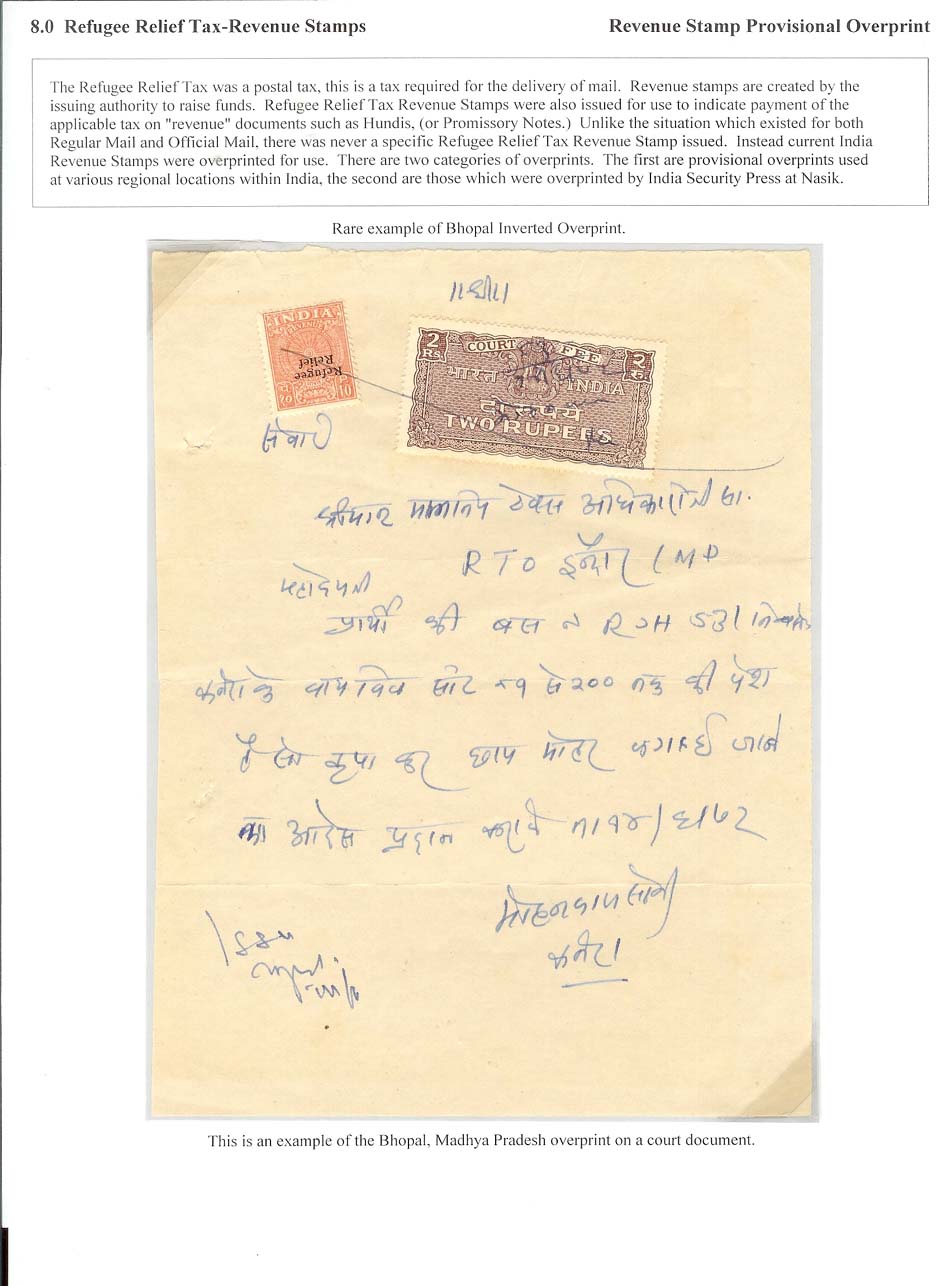 8.0 Refugee Relief Tax-Revenue Stamps
Revenue Stamp Provisional Overprint
The Refugee Relief Tax was a postal tax, this is a tax required for the delivery of mail. Revenue stamps are created by the
issuing authority to raise funds. Refugee Relief Tax Revenue Stamps were also issued for use to indicate payment of the
applicable tax on "revenue" documents such as Hundis, (or Promissory Notes.) Unlike the situation which existed for both
Regular Mail and Official Mail, there was never a specific Refugee Relief Tax Revenue Stamp issued. Instead current India
Revenue Stamps were overprinted for use. There are two categories of overprints. The first are provisional overprints used
at various regional locations within India, the second are those which were overprinted by India Security Press at Nasik.
Rare example of Bhopal Inverted Overprint.
॥श्री॥
INDIA
REVENUE
Refugee
Relief
१० 10
2 Rs COURT FEE २ रु
भारत INDIA
दो रुपये
TWO RUPEES
सेवामें
श्रीमान
RTO इन्दौर (MP
महोदयजी
प्रार्थी की बस नं RJH 531
से २०० तक की पेश
है सो कृपा कर छाप मोहर जाने
का आदेस प्रदान
This is an example of the Bhopal, Madhya Pradesh overprint on a court document.